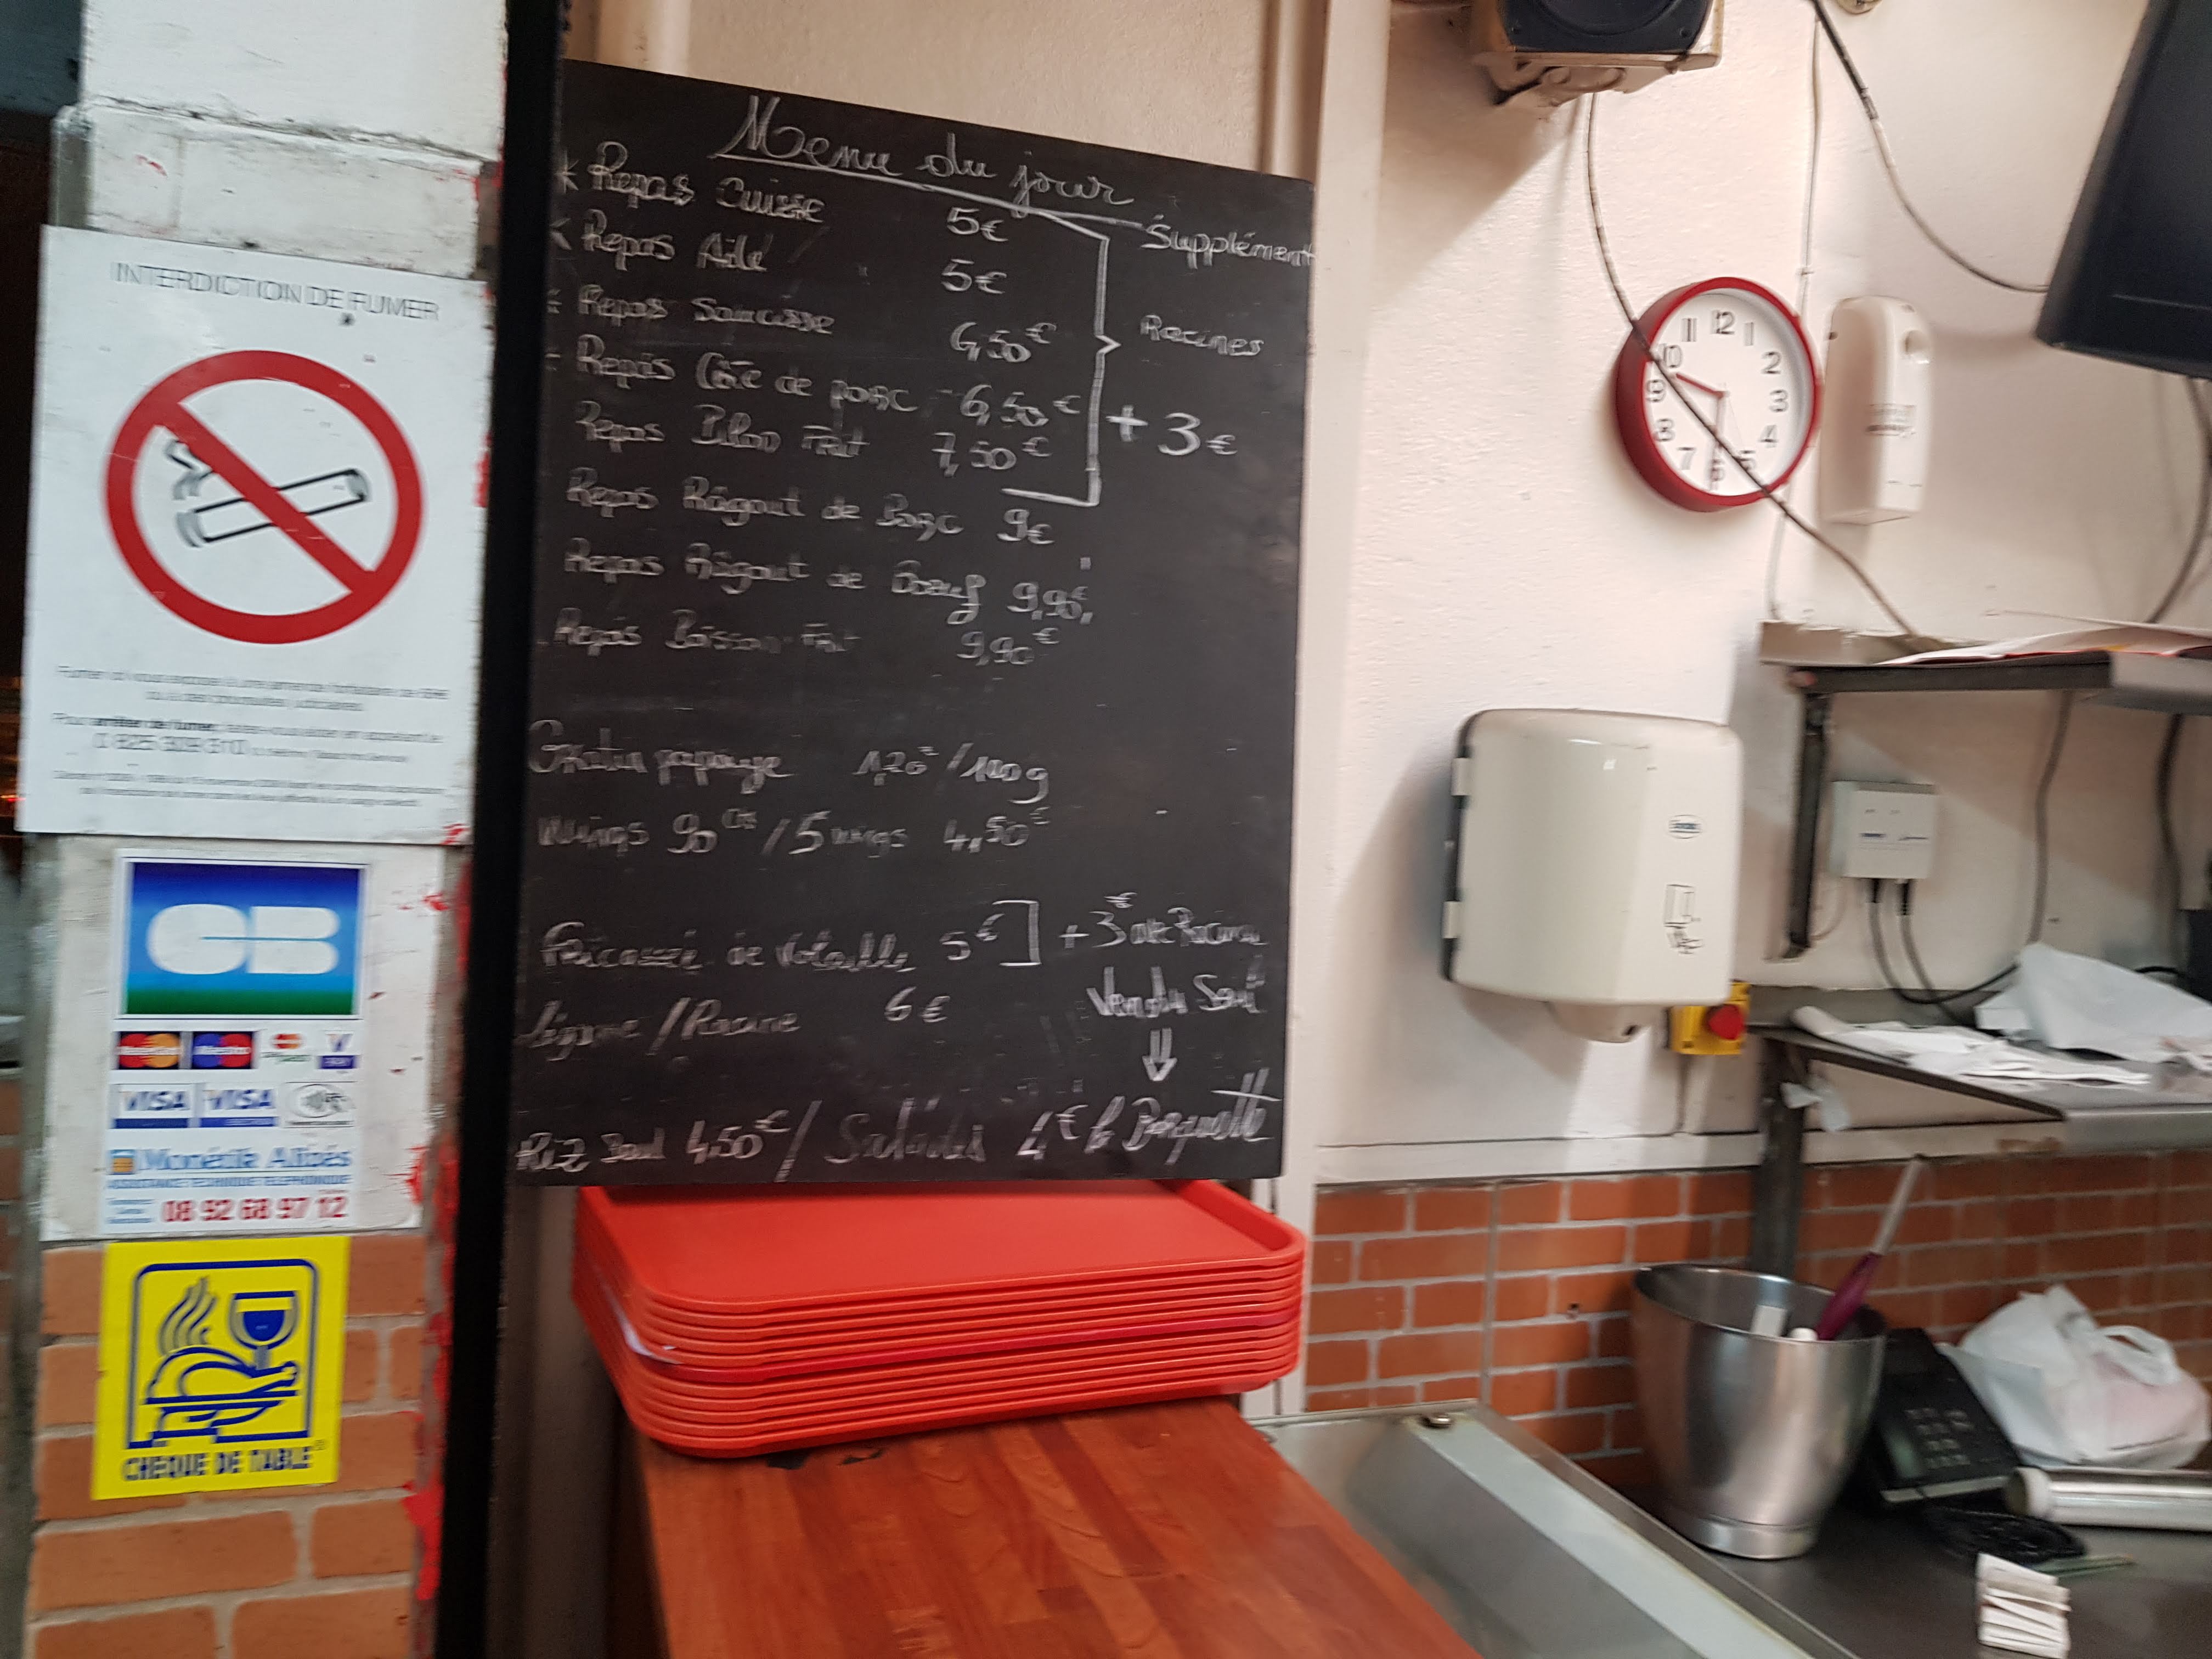 INTERDICTION DE FUMER
Pour arrêter de fumer
CB
VISA VISA
Monétik Alizés
ASSISTANCE TECHNIQUE TELEPHONIQUE
08 92 68 97 12
CHEQUE DE TABLE
Menu du jour
* Repas Cuisse 5€
Repas Aile 5€
Repas Saucisse 6,50€
Repas Côte de porc 6,50€
Repas Frit 7,50€
Repas Ragout de Porc 9€
Repas Ragout de Boeuf 9,90€
Repas Poisson Frit 9,90€
Supplément
Racines
+ 3€
Gratin papaye 1,20€/100g
wings 90cts/5 wings 4,50€
Fricassée de Volaille 5€ + 3€ avec Racine
Légume/Racine 6€
Vendu Seul
Riz Seul 4,50€/ Salades 4€ la Barquette
12 1 2 3 4 5 6 7 8 9 10 11